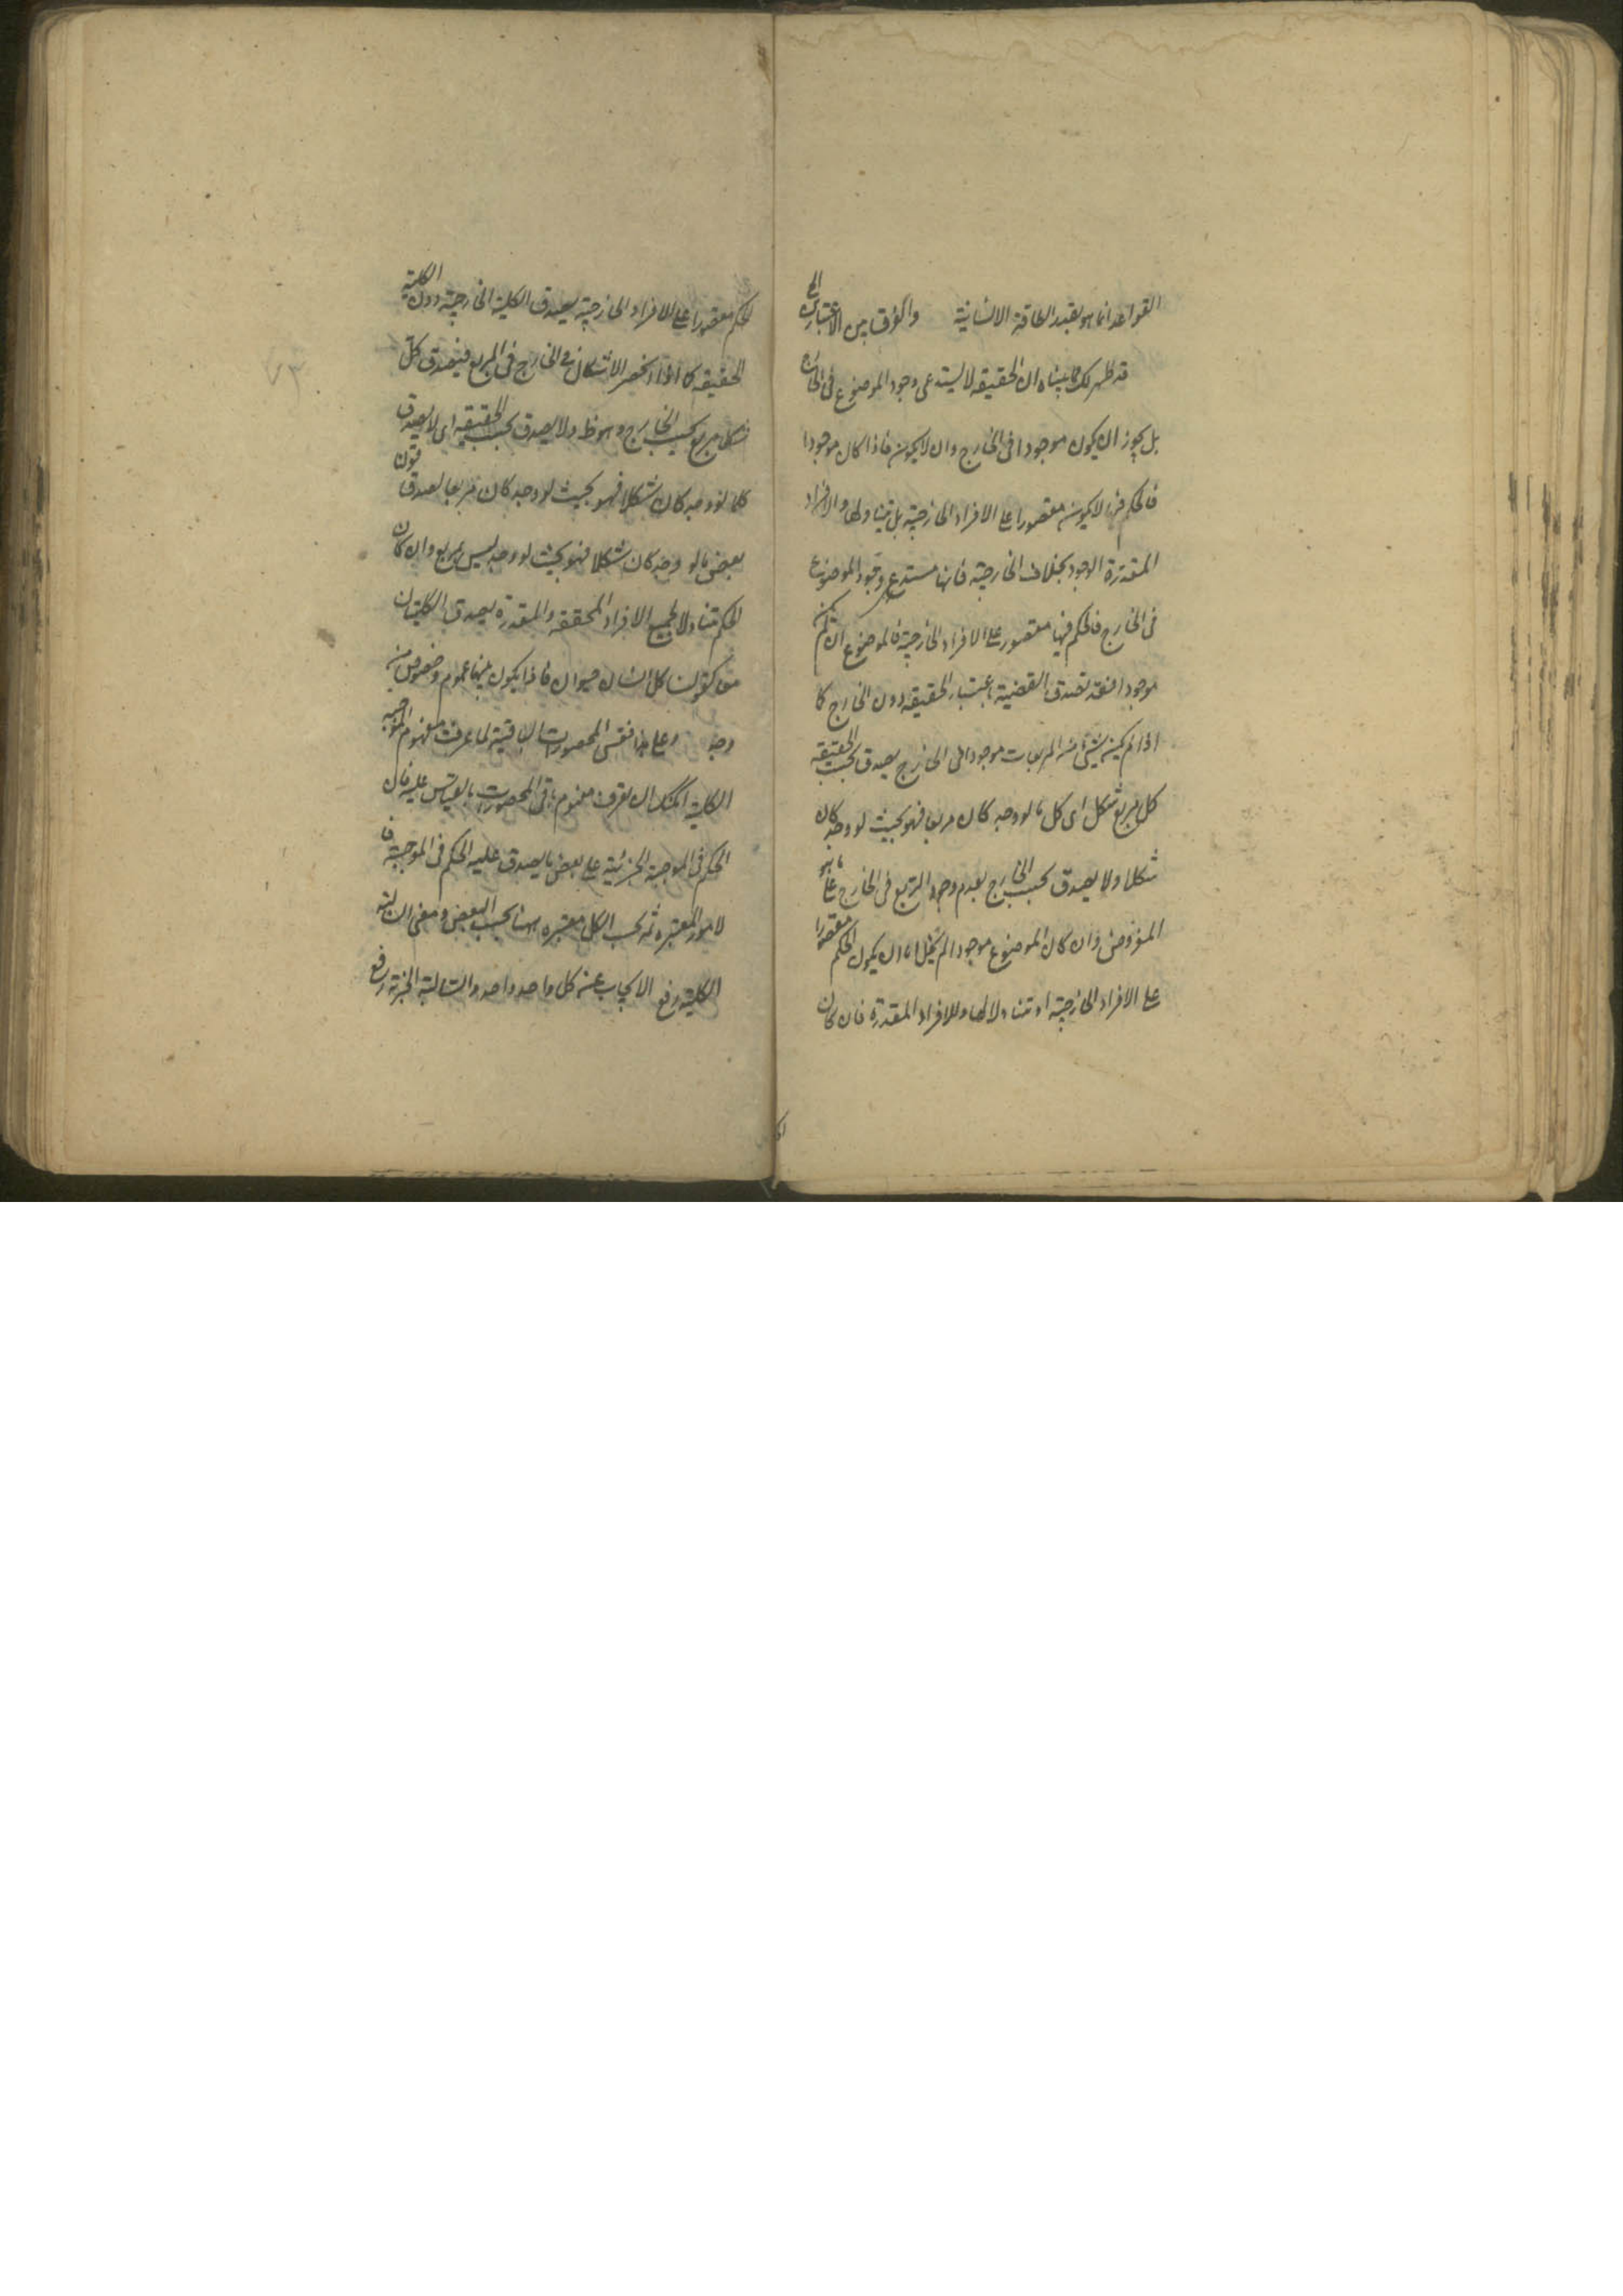 القواعد انما هو بقدر الطاقة الانسانية والفرق بين الاعتبارين الخ
قد ظهر لك مما بيناه ان الحقيقه لا يستدعى وجود الموضوع فى الخارج
بل يجوز ان يكون موجودا فى الخارج وان لا يكون فاذا كان موجودا
فالحكم فيها لا يكون مقصورا على الافراد الخارجية بل يتناولها والافراد
المقدرة الوجود بخلاف الخارجية فانها مستدعى وجود الموضوع
فى الخارج فالحكم فيها مقصور على الافراد الخارجية فالموضوع ان لم يكن
موجودا فقد تصدق القضية باعتبار الحقيقه دون الخارج كما
اذا لم يكن شئ من المربعات موجودا فى الخارج يصدق بحسب الحقيقه
كل مربع شكل اى كل ما لو وجد كان مربعا فهو بحيث لو وجد كان
شكلا ولا يصدق بحسب الخارج لعدم وجود المربع فى الخارج على ما هو
المفروض وان كان الموضوع موجودا لم يخل اما ان يكون الحكم مقصورا
على الافراد الخارجية او متناولا لها وللافراد المقدرة فان كان
الحكم مقصورا على الافراد الخارجية يصدق الكلية الخارجية دون الكلية
الحقيقه كما اذا انحصر الاشكال فى الخارج فى المربع فيصدق كل
شكل مربع بحسب الخارج وهو ظ ولا يصدق بحسب الحقيقه اى لا يصدق
كلما لو وجد كان شكلا فهو بحيث لو وجد كان مربعا لصدق قولن
بعض ما لو وجد كان شكلا فهو بحيث لو وجد ليس بمربع وان كان
الحكم متناولا لجميع الافراد المحققه والمقدرة يصدق الكليتان
معا كقولنا كل انسان حيوان فاذا يكون بينهما عموم وخصوص من
وجه وعلى هذا فقس المحصورات الباقية لما عرفت مفهوم الموجبه
الكلية امكنك ان تعرف مفهوم باقى المحصورات بالقياس عليه فان
الحكم فى الموجبة الجزئية على بعض ما يصدق عليه الحكم فى الموجبة فا
لامور المعتبره ثمه بحسب الكل معتبره ههنا بحسب البعض ومعنى السالبه
الكلية رفع الايجاب عن كل واحد واحد والسالبة الجزئية رفع